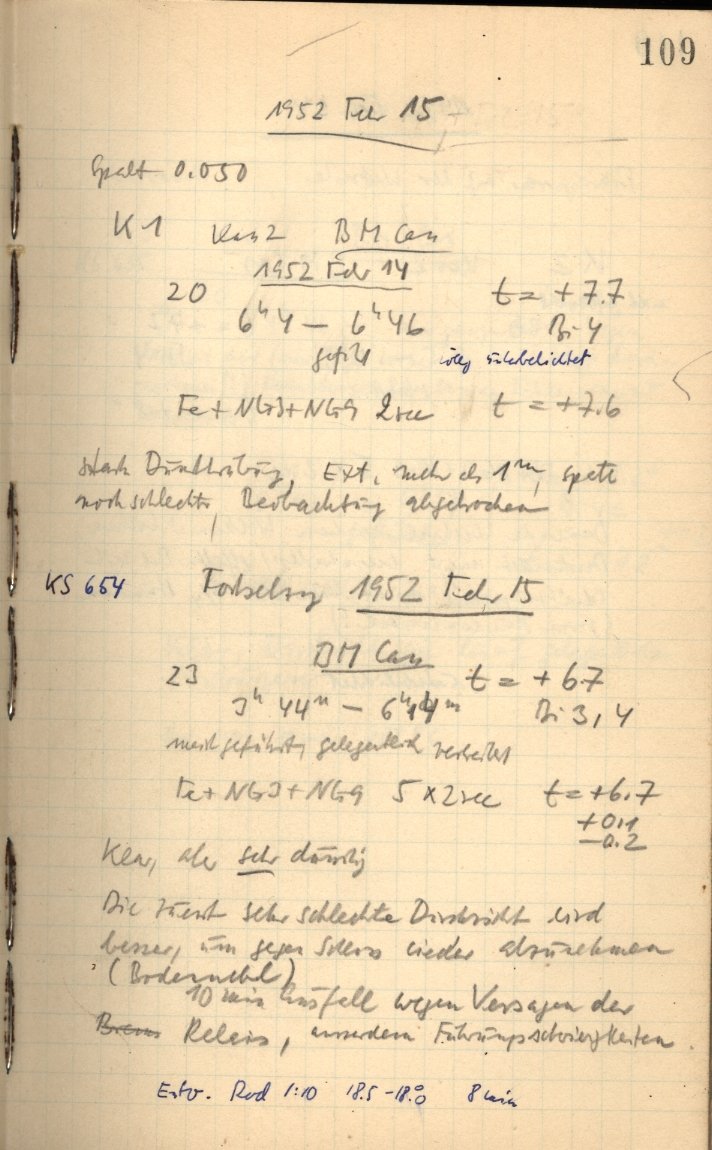 109
1952 Febr 15
Spalt 0.050
K 1 Kam 2 BM Cam
1952 Febr 14
20 t = +7.7
6h 4 – 6h 46 Bi 4
geführt völlig unterbelichtet
Fe + NG3 + NG9 2 sec t = +7.6
stark Dunsttrübung, Ext. mehr als 1m, später
noch schlechter, Beobachtung abgebrochen
KS 654 Fortsetzung 1952 Febr 15
BM Cam
23 t = +6.7
3h 44m – 6h 14m Bi 3,4
meist geführt, gelegentlich
Fe + NG3 + NG9 5 x 2 sec t = +6.7
+0.1
–0.2
Klar, aber sehr dunstig
Die zuerst sehr schlechte Durchsicht wird
besser, um gegen Schluss wieder abzunehmen
(Bodennebel)
10 min Ausfall wegen Versagen der
Relais, ausserdem Führungsschwierigkeiten
Entw. Rod 1:10 18.5 – 18.0 8 min